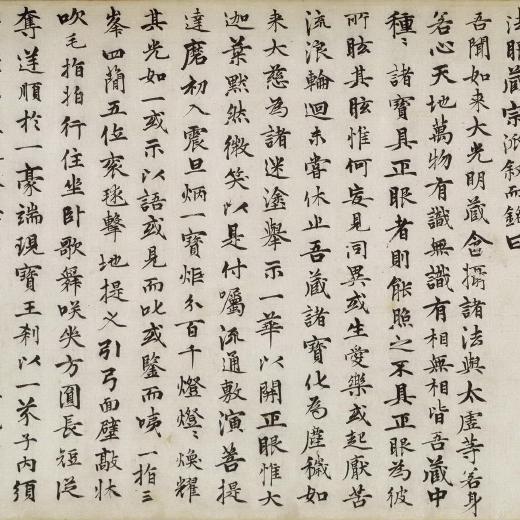 法眼藏宗派敘而銘曰
吾聞如来大光明藏含攝諸法與太虛等若身
若心天地萬物有識無識有相無相皆吾藏中
種〻諸寶具正眼者則能照之不具正眼為彼
所眩其眩惟何妄見同異或生愛樂或起厭苦
流浪輪迴未嘗休止吾藏諸寶化為塵穢如
来大慈為諸迷塗舉示一華以開正眼惟大
迦葉默然微笑以是付囑流通敷演菩提
達磨初入震旦炳一寶炬分百千燈燈〻煥耀
其光如一或示以語或見而叱或鑒而咦一指三
峯四藺五位衮毬擊地提叉引弓面壁敲牀
吹毛指拍行住坐卧歌舞咲哭方圓長短逆
奪送順於一豪端現寶王刹以一芥子内須